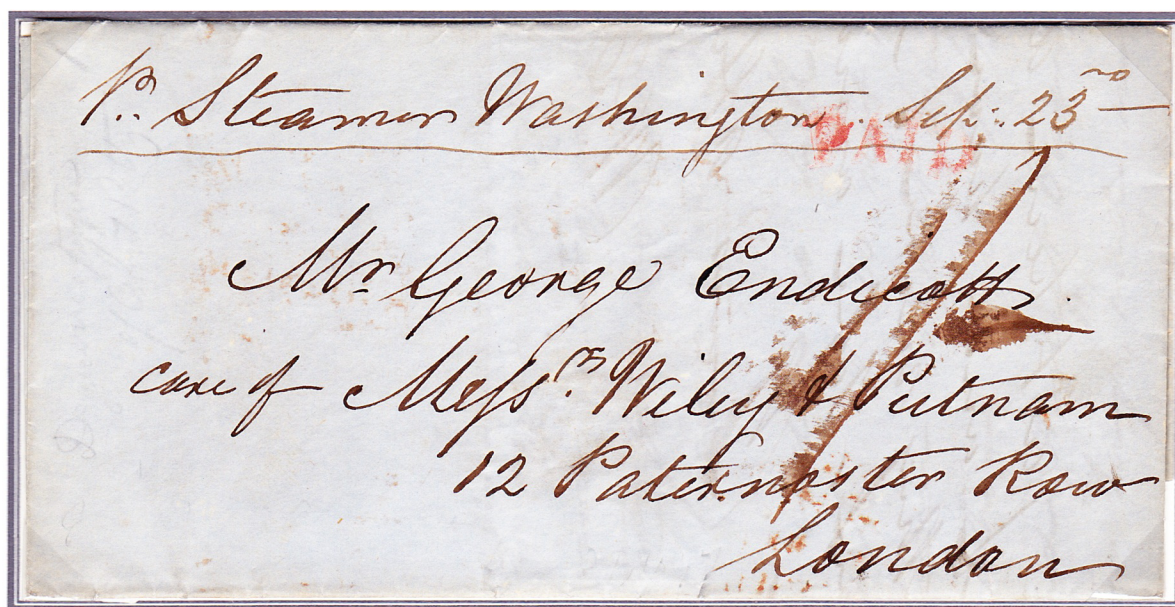 Pr. Steamer Washington. Sep. 23rd
PAID
Mr George Endicott.
care of Messrs. Wiley & Putnam
12 Paternoster Row
London